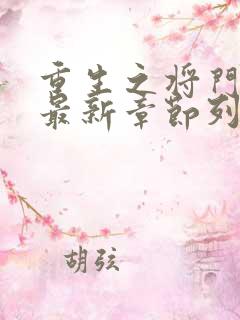 重生之将门
最新章节列
胡弦